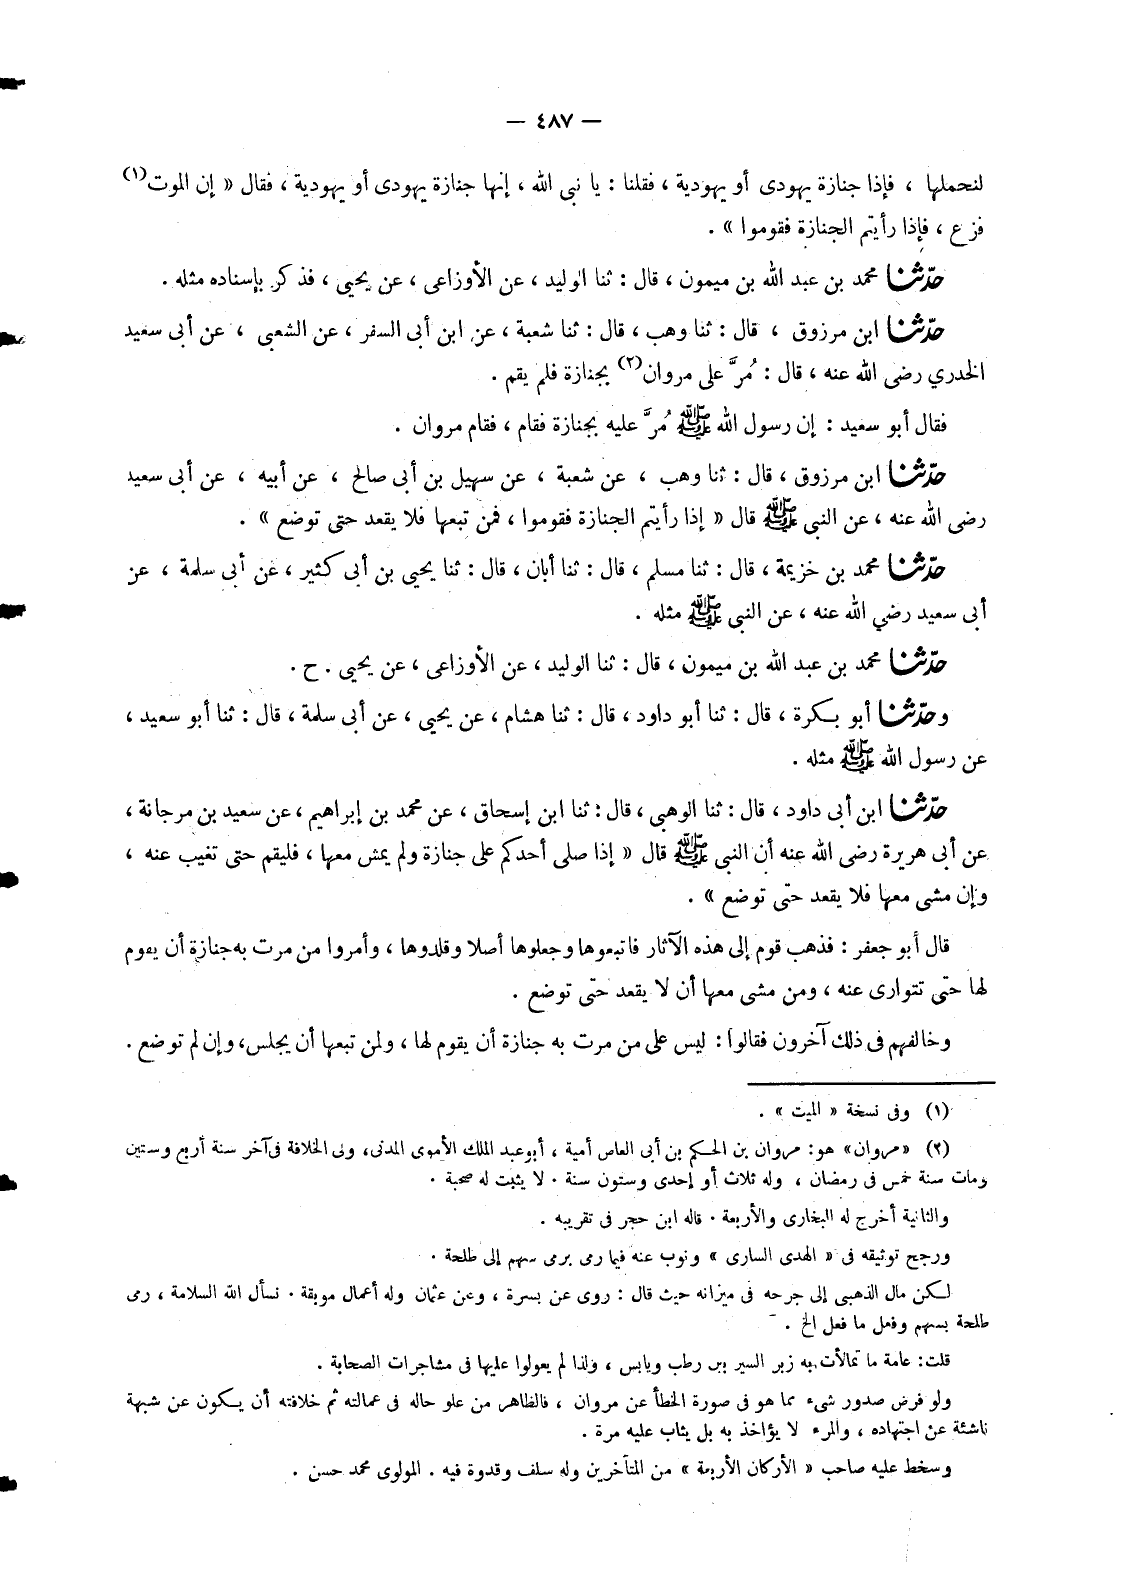 — ٤٨٧ —
لنحملها ، فإذا جنازة يهودى أو يهودية ، فقلنا : يا نبى الله ، إنها جنازة يهودى أو يهودية ، فقال « إن الموت(١)
فزع ، فإذا رأيتم الجنازة فقوموا » .
حدّثنا محمد بن عبد الله بن ميمون ، قال : ثنا الوليد ، عن الأوزاعى ، عن يحيى ، فذكر بإسناده مثله .
حدّثنا ابن مرزوق ، قال : ثنا وهب ، قال : ثنا شعبة ، عن ابن أبى السفر ، عن الشعبى ، عن أبى سعيد
الخدري رضى الله عنه ، قال : مُرَّ على مروان(٢) بجنازة فلم يقم .
فقال أبو سعيد : إن رسول الله ﷺ مُرَّ عليه بجنازة فقام ، فقام مروان .
حدّثنا ابن مرزوق ، قال : ثنا وهب ، عن شعبة ، عن سهيل بن أبى صالح ، عن أبيه ، عن أبى سعيد
رضى الله عنه ، عن النبى ﷺ قال « إذا رأيتم الجنازة فقوموا ، فمن تبعها فلا يقعد حتى توضع » .
حدّثنا محمد بن خزيمة ، قال : ثنا مسلم ، قال : ثنا أبان ، قال : ثنا يحيى بن أبى كثير ، عن أبى سلمة ، عن
أبى سعيد رضي الله عنه ، عن النبى ﷺ مثله .
حدّثنا محمد بن عبد الله بن ميمون ، قال : ثنا الوليد ، عن الأوزاعى ، عن يحيى . ح .
وحدّثنا أبو بكرة ، قال : ثنا أبو داود ، قال : ثنا هشام ، عن يحيى ، عن أبى سلمة ، قال : ثنا أبو سعيد ،
عن رسول الله ﷺ مثله .
حدّثنا ابن أبى داود ، قال : ثنا الوهبى ، قال : ثنا ابن إسحاق ، عن محمد بن إبراهيم ، عن سعيد بن مرجانة ،
عن أبى هريرة رضى الله عنه أن النبى ﷺ قال « إذا صلى أحدكم على جنازة ولم يمش معها ، فليقم حتى تغيب عنه ،
وإن مشى معها فلا يقعد حتّى توضع » .
قال أبو جعفر : فذهب قوم إلى هذه الآثار فاتبعوها وجعلوها أصلا وقلدوها ، وأمروا من مرت به جنازة أن يقوم
لها حتّى تتوارى عنه ، ومن مشى معها أن لا يقعد حتّى توضع .
وخالفهم فى ذلك آخرون فقالوا : ليس على من مرت به جنازة أن يقوم لها ، ولمن تبعها أن يجلس، وإن لم توضع .
(١) وفى نسخة « الميت » .
(٢) «مروان» هو: مروان بن الحكم بن أبى العاص أمية ، أبوعبد الملك الأموى المدنى، ولى الخلافة فى آخر سنة أربع وستين
ومات سنة خمس فى رمضان ، وله ثلاث أو إحدى وستون سنة . لا يثبت له صحبة .
والثانية أخرج له البخارى والأربعة . قاله ابن حجر فى تقريبه .
ورجح توثيقه فى « الهدى السارى » ونوب عنه فيما رمى برمى سهم إلى طلحة .
لكن مال الذهبى إلى جرحه فى ميزانه حيث قال : روى عن بسرة ، وعن عثمان وله أعمال موبقة . نسأل الله السلامة ، رمى
طلحة بسهم وفعل ما فعل الخ .
قلت: عامة ما تمالأت به زبر السير بين رطب ويابس ، ولذا لم يعولوا عليها فى مشاجرات الصحابة .
ولو فرض صدور شىء مما هو فى صورة الخطأ عن مروان ، فالظاهر من علو حاله فى عمالته ثم خلافته أن يكون عن شبهة
ناشئة عن اجتهاده ، والمرء لا يؤاخذ به بل يثاب عليه مرة .
وسخط عليه صاحب « الأركان الأربعة » من المتأخرين وله سلف وقدوة فيه . المولوى محمد حسن .